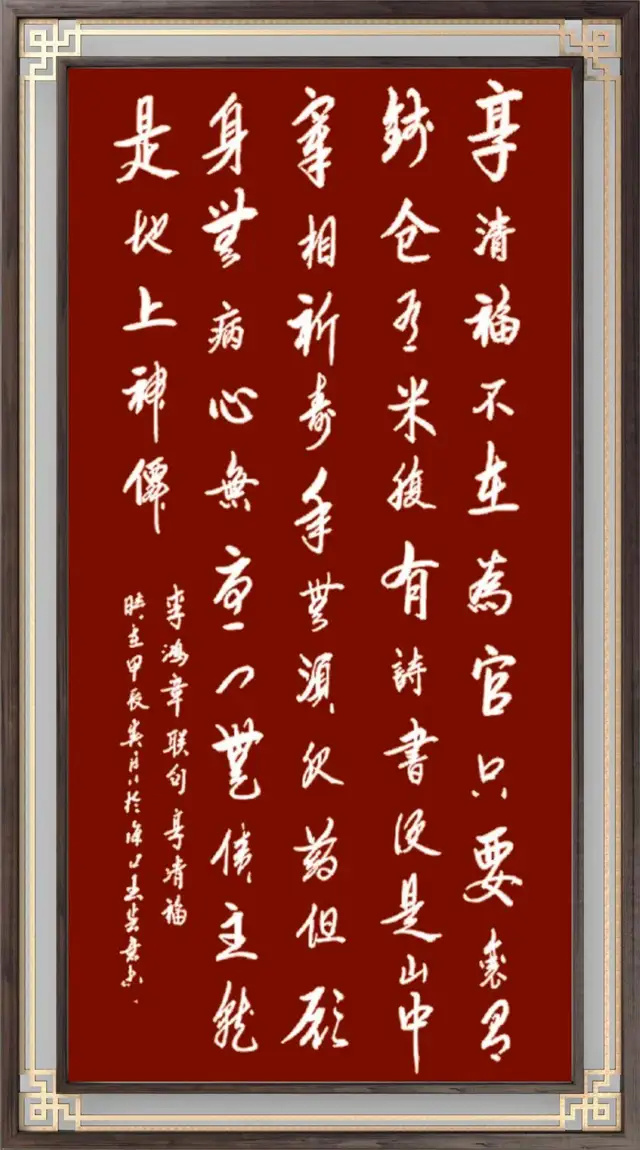 享清福不在為官只要囊有
錢仓有米腹有詩書便是山中
宰相祈寿年無須服药但願
身無病心無憂门無債主就
是地上神僊
李鴻章联句享清福
甲辰 月於海口